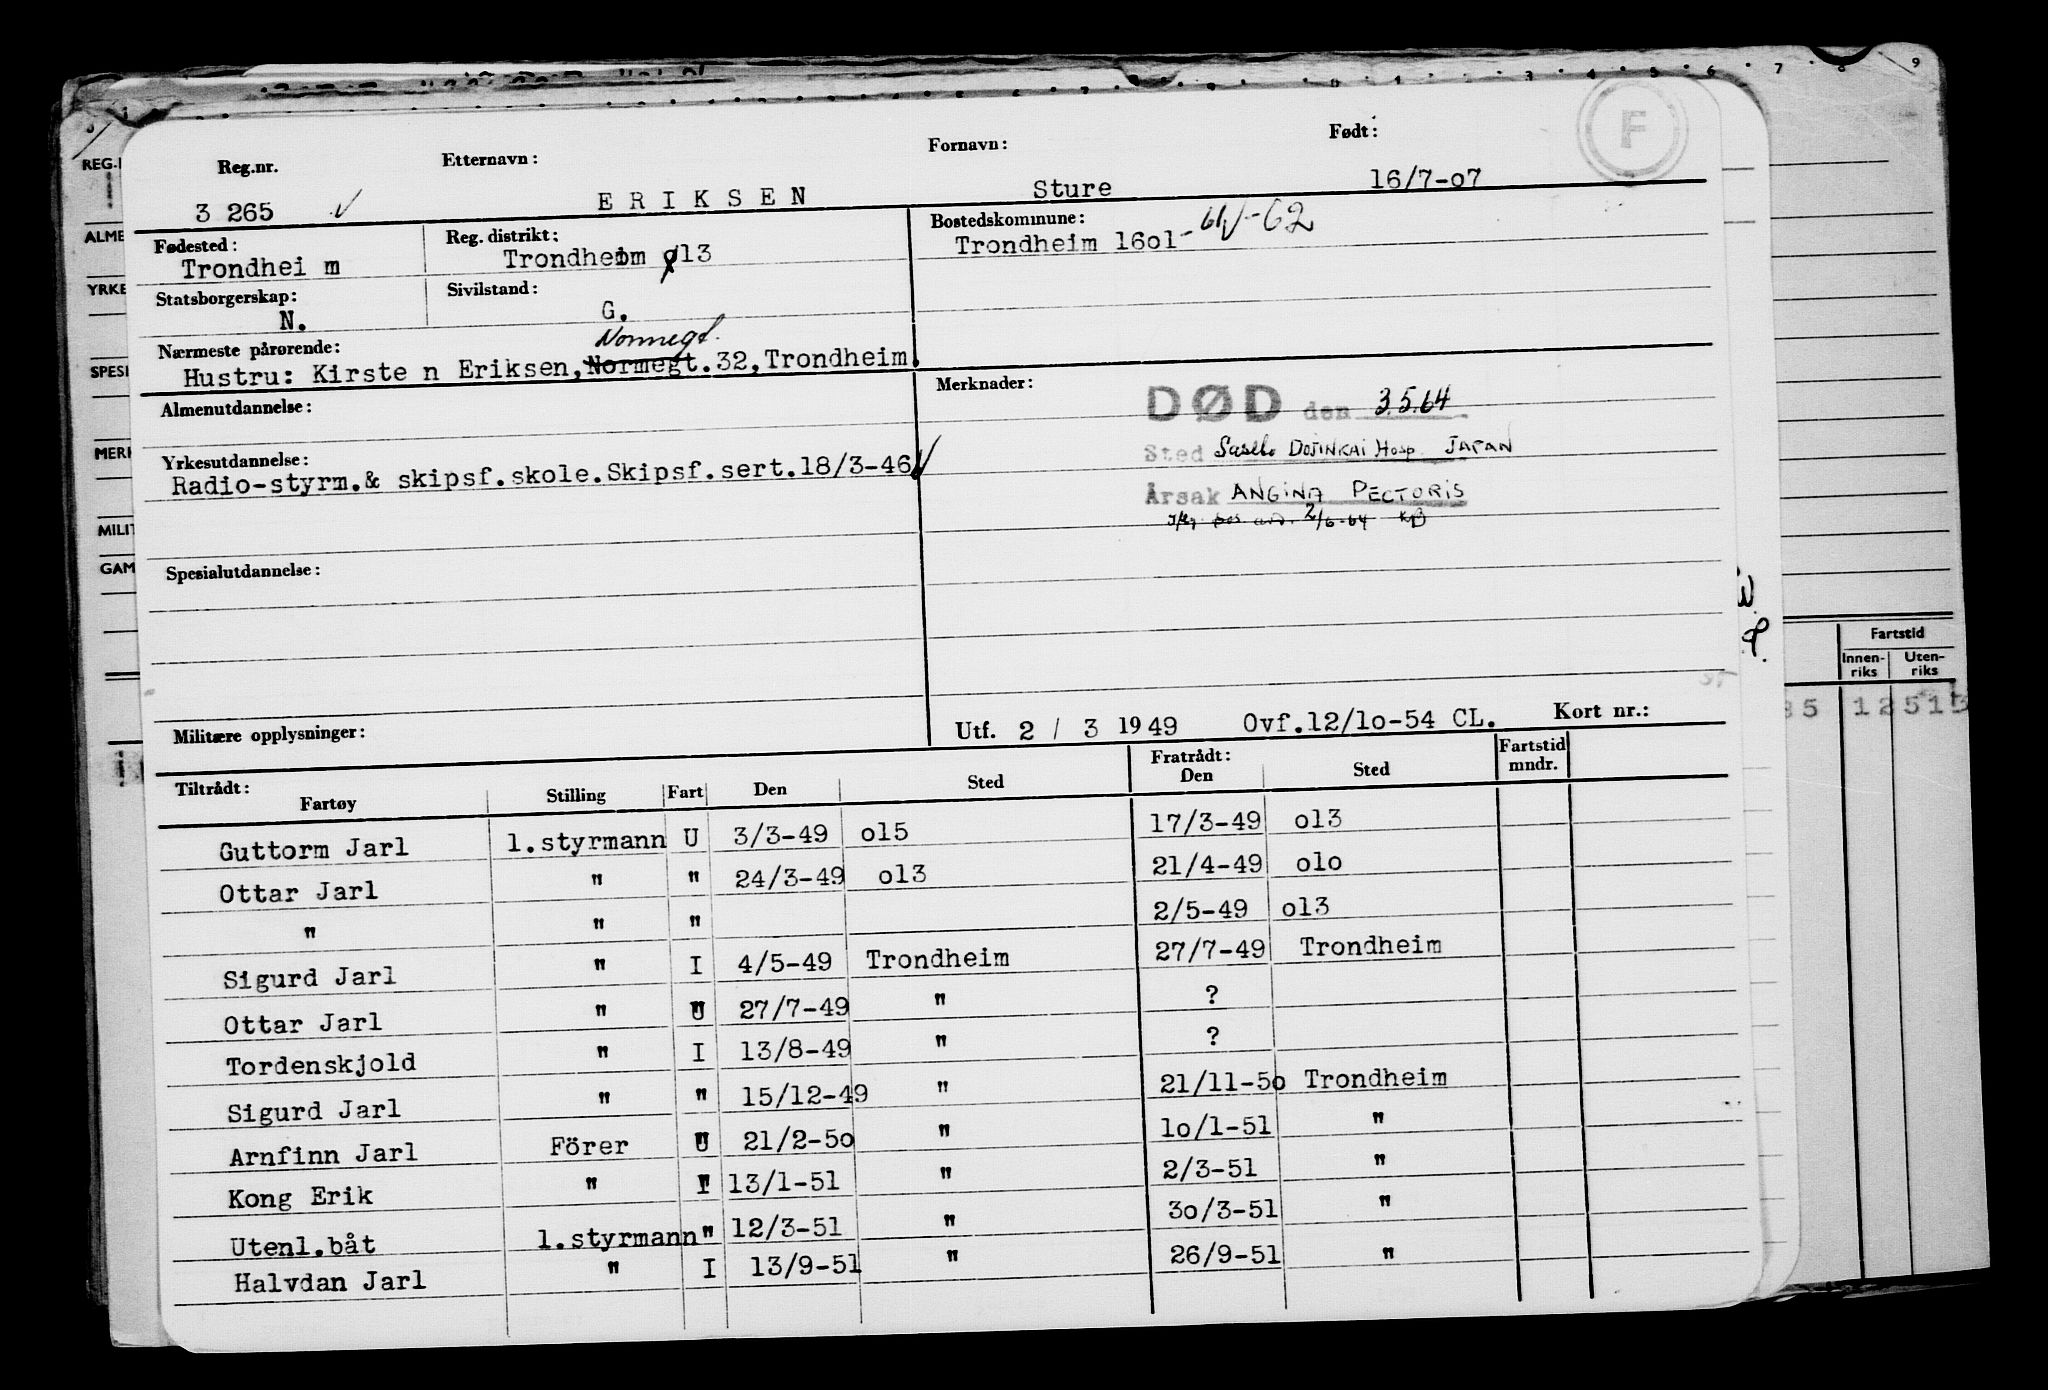 Reg.nr. Etternavn: Fornavn: Født:
3 265 E R I K S E N Sture 16/7-o7
F
Fødested: Reg. distrikt: Bostedskommune:
Trondhei m Trondheim ø13 Trondheim 16o1- -62
Statsborgerskap: Sivilstand:
N. G.
Nonnegt.
Nærmeste pårørende:
Hustru: Kirste n Eriksen, Normegt.32, Trondheim.
Almenutdannelse: Merknader:
DØD den 3.5.64
Yrkesutdannelse: Sted Sasebo DOJINKAI Hosp. JAPAN
Radio-styrm.& skipsf.skole.Skipsf.sert.18/3-46
Årsak ANGINA PECTORIS
2/6-64 KB
Spesialutdannelse:
Militære opplysninger: Utf. 2 / 3 1949 Ovf.12/1o-54 CL. Kort nr.:
Tiltrådt: Fratrådt: Fartstid
Fartøy Stilling Fart Den Sted Den Sted mndr.
Guttorm Jarl 1.styrmann U 3/3-49 o15 17/3-49 o13
Ottar Jarl " " 24/3-49 o13 21/4-49 o1o
" " " 2/5-49 o13
Sigurd Jarl " I 4/5-49 Trondheim 27/7-49 Trondheim
Ottar Jarl " U 27/7-49 " ?
Tordenskjold " I 13/8-49 " ?
Sigurd Jarl " " 15/12-49 " 21/11-5o Trondheim
Arnfinn Jarl Förer U 21/2-5o " 1o/1-51 "
Kong Erik " I 13/1-51 " 2/3-51 "
Utenl.båt 1.styrmann " 12/3-51 " 3o/3-51 "
Halvdan Jarl " I 13/9-51 " 26/9-51 "
REG.
ALME
YRKE
SPESI
MERK
MILIT
GAM
Fartstid
Innen-riks Uten-riks
35 12513